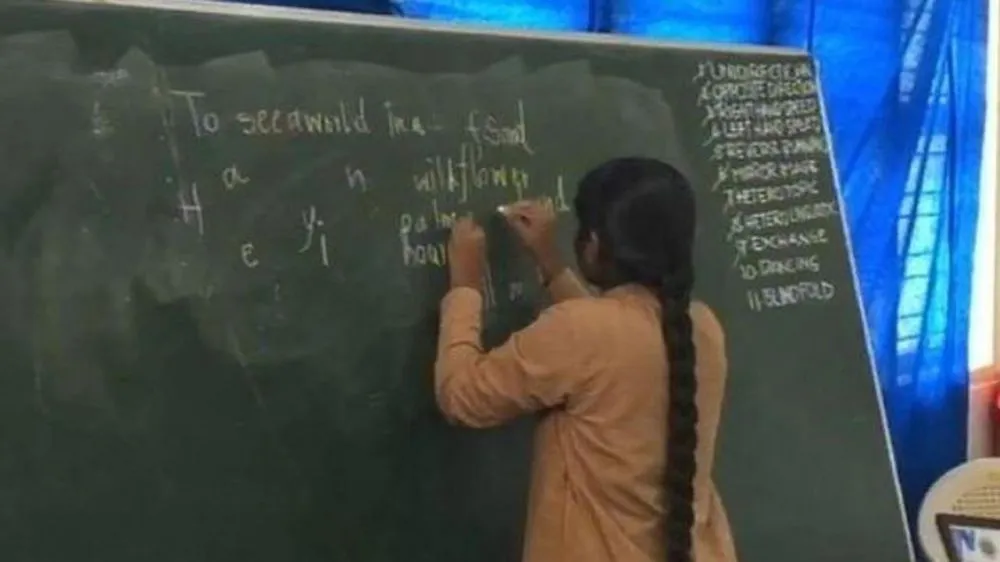 To see a world in a f Sand
a n wildflower
H y. palm nd
e i hour
1 UNIDIRECTIONAL
2 OPPOSITE DIRECTION
3 RIGHT HAND SPEED
4 LEFT HAND SPEED
5 REVERSE RUNNING
6 MIRROR IMAGE
7 HETEROTOPIC
8 HETEROLINGUISTIC
9 EXCHANGE
10 DANCING
11 BLINDFOLD